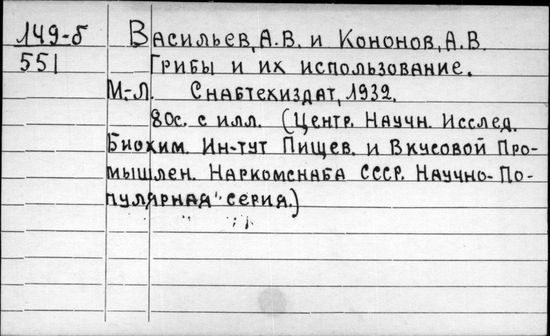 149-б Васильев, А.В. и Кононов, А.В.
551 Грибы и их использование.
М.-Л. Снабтехиздат, 1932.
80с. с илл. (Центр. Научн. Исслед.
Биохим. Ин-тут Пищев. и Вкусовой Про-
мышлен. Наркомснаба СССР. Научно-По-
пулярная серия.)